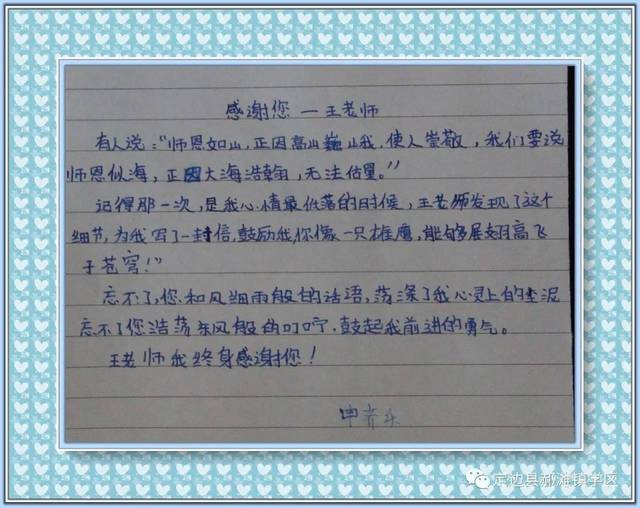 感谢您—王老师
有人说:"师恩如山,正因高山巍山我,使人崇敬,我们要说
师恩似海,正因大海浩翰,无法估量。"
记得那一次,是我心情最低落的时候,王老师发现了这个
细节,为我写了一封信,鼓励我,你像一只雄鹰,能够展翅高飞
于苍穹!"
忘不了,您和风细雨般的话语,荡涤了我心灵上的尘泥
忘不了您浩荡东风般的叮咛,鼓起我前进的勇气。
王老师我终身感谢您!
定边县郝滩镇学区